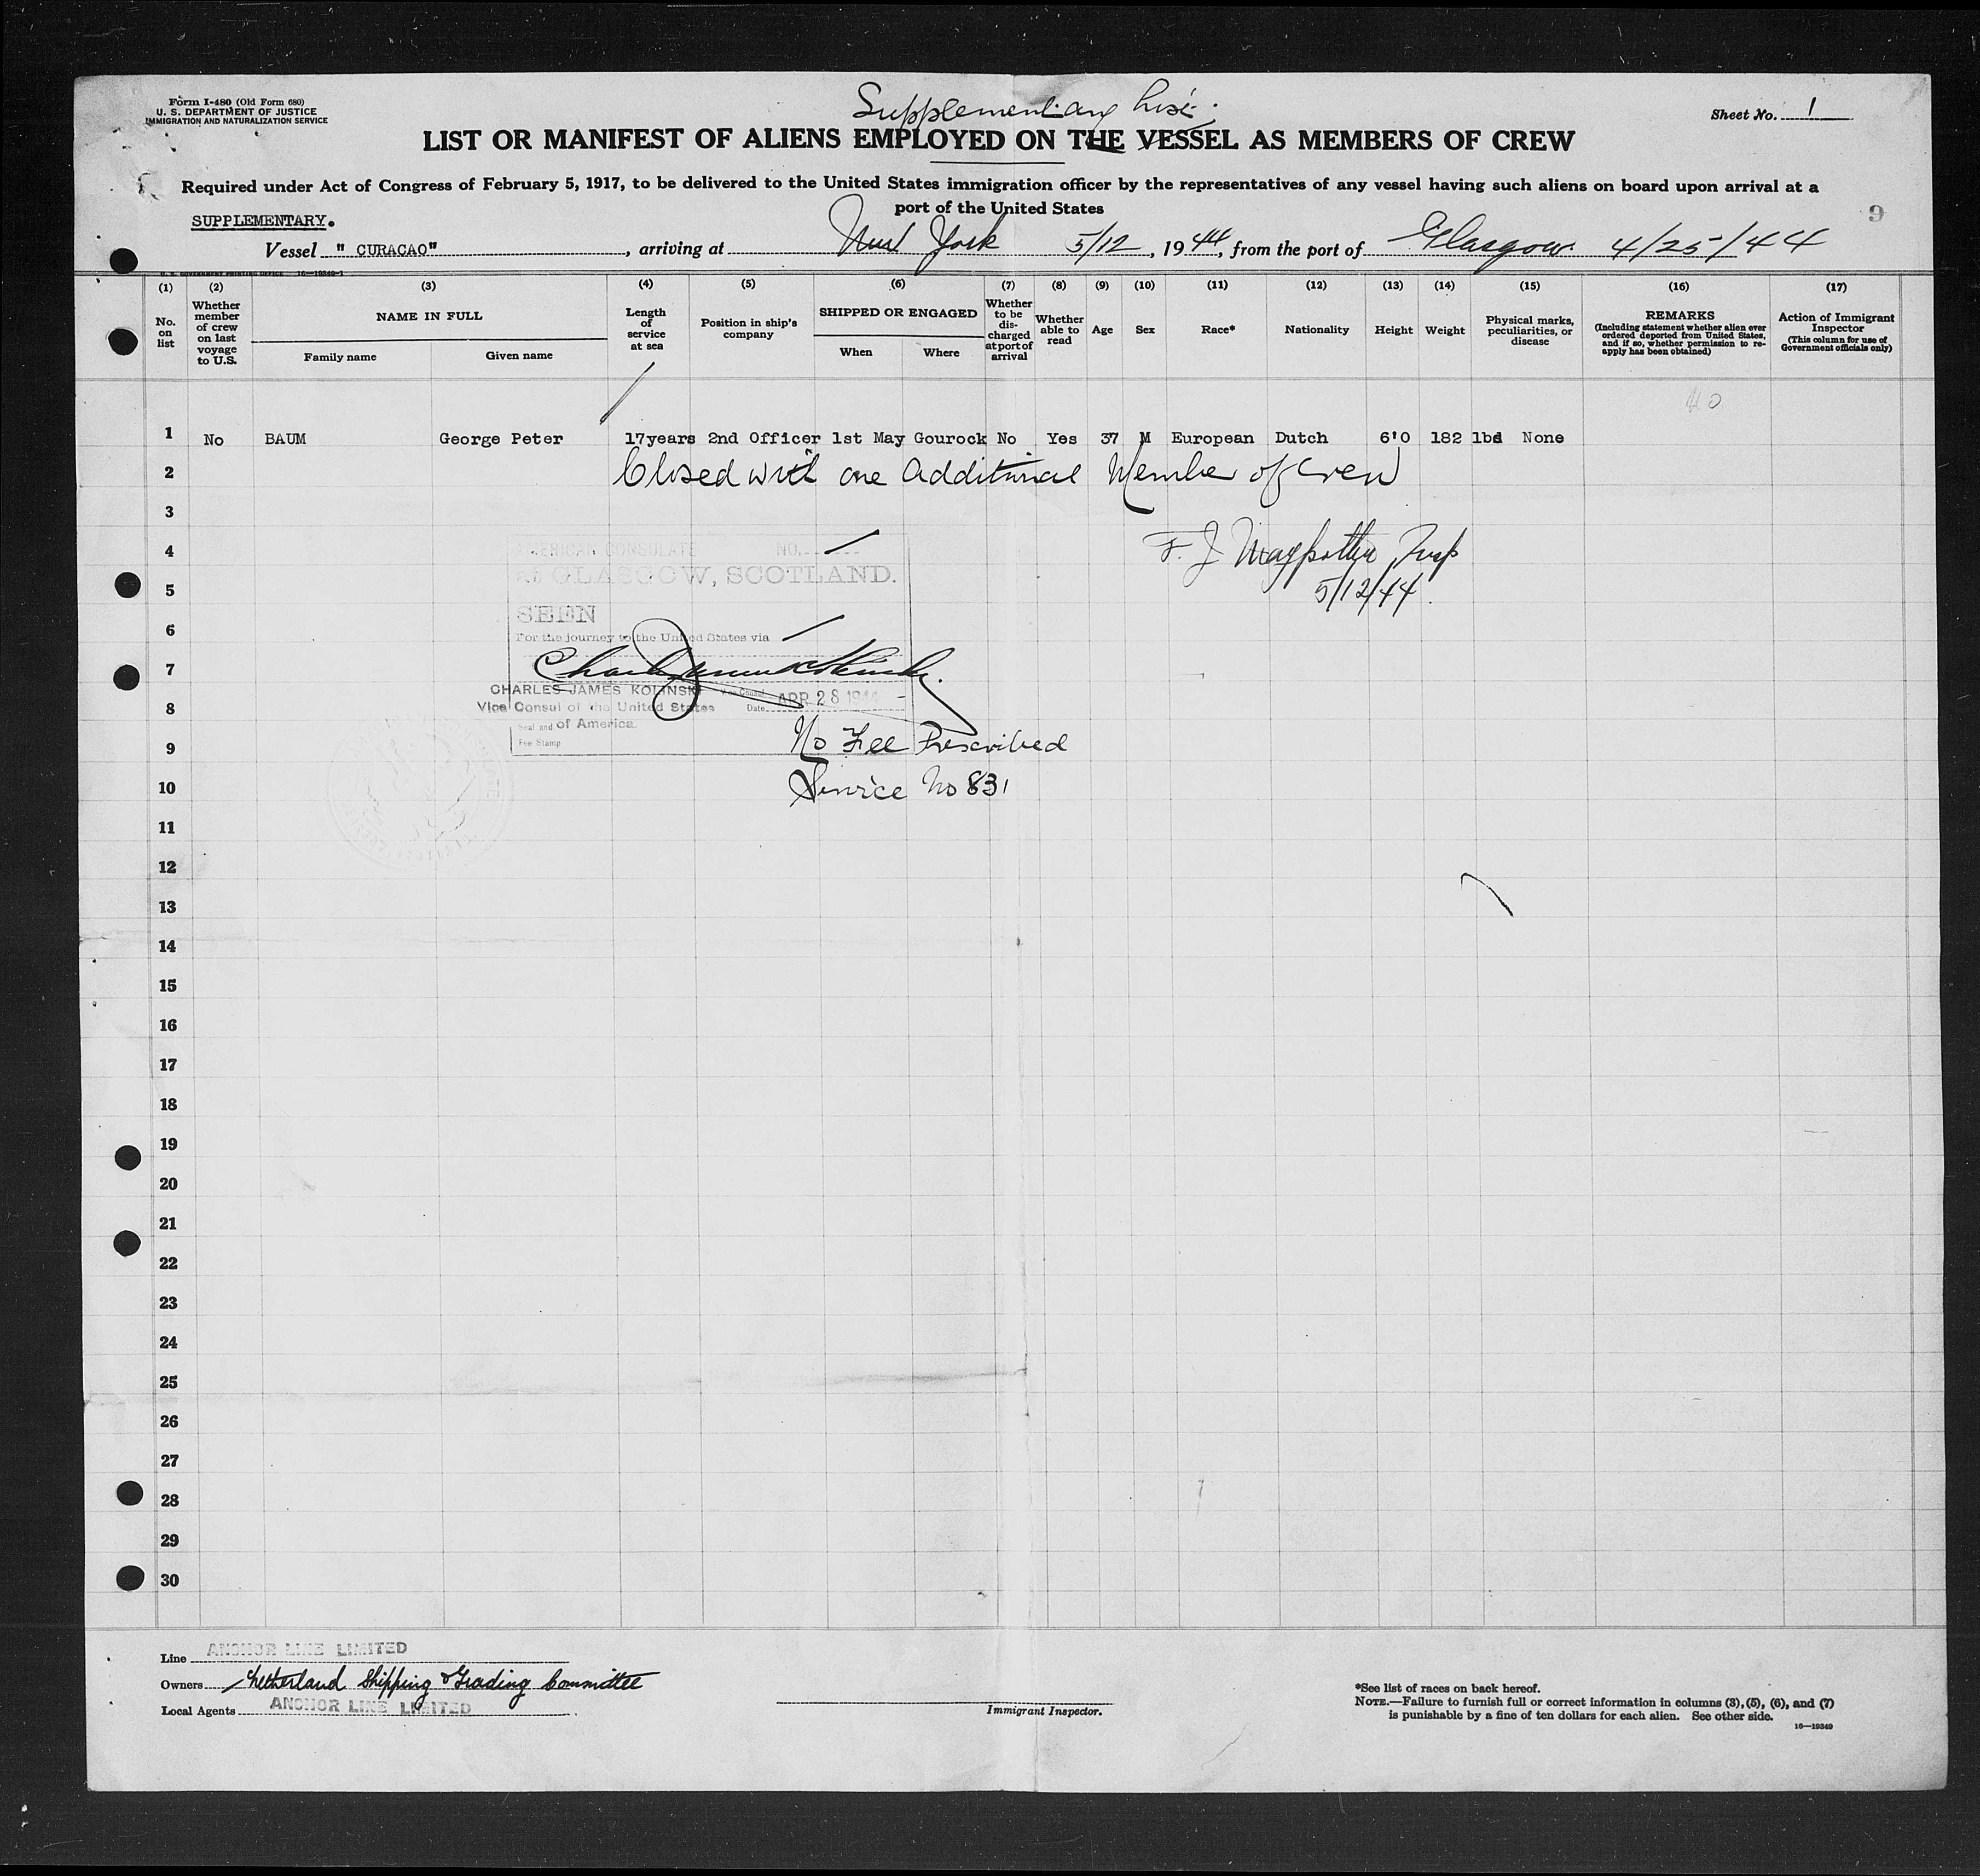 Form I-480 (Old Form 680)
U. S. DEPARTMENT OF JUSTICE
IMMIGRATION AND NATURALIZATION SERVICE
Supplementary List.
Sheet No. 1
LIST OR MANIFEST OF ALIENS EMPLOYED ON THE VESSEL AS MEMBERS OF CREW
Required under Act of Congress of February 5, 1917, to be delivered to the United States immigration officer by the representatives of any vessel having such aliens on board upon arrival at a
port of the United States
SUPPLEMENTARY.
9
Vessel "CURACAO", arriving at New York 5/12, 1944, from the port of Glasgow 4/25/44
U. S. GOVERNMENT PRINTING OFFICE 16—19349-1
(1) (2) (3) (4) (5) (6) (7) (8) (9) (10) (11) (12) (13) (14) (15) (16) (17)
No. on list
Whether member of crew on last voyage to U.S.
NAME IN FULL
Family name
Given name
Length of service at sea
Position in ship's company
SHIPPED OR ENGAGED
When
Where
Whether to be discharged at port of arrival
Whether able to read
Age
Sex
Race*
Nationality
Height
Weight
Physical marks, peculiarities, or disease
REMARKS
(Including statement whether alien ever ordered deported from United States, and if so, whether permission to reapply has been obtained)
Action of Immigrant Inspector
(This column for use of Government officials only)
1 No BAUM George Peter 17years 2nd Officer 1st May Gourock No Yes 37 M European Dutch 6'0 182 lbs None
2 Closed with one Additional Member of Crew
3
4
5
6
7
8
9
10
11
12
13
14
15
16
17
18
19
20
21
22
23
24
25
26
27
28
29
30
F. J. Insp
5/12/44.
AMERICAN CONSULATE NO.
at GLASGOW, SCOTLAND.
SEEN
For the journey to the United States via
CHARLES JAMES KOLINSKI
Vice Consul of the United States
of America.
Date APR 28 1944
Seal and
Fee Stamp
No Fee Prescribed
Service No 831
Line ANCHOR LINE LIMITED
Owners Netherland Shipping & Trading Committee
Local Agents ANCHOR LINE LIMITED
Immigrant Inspector.
*See list of races on back hereof.
NOTE.—Failure to furnish full or correct information in columns (3), (5), (6), and (7)
is punishable by a fine of ten dollars for each alien. See other side.
16—19349